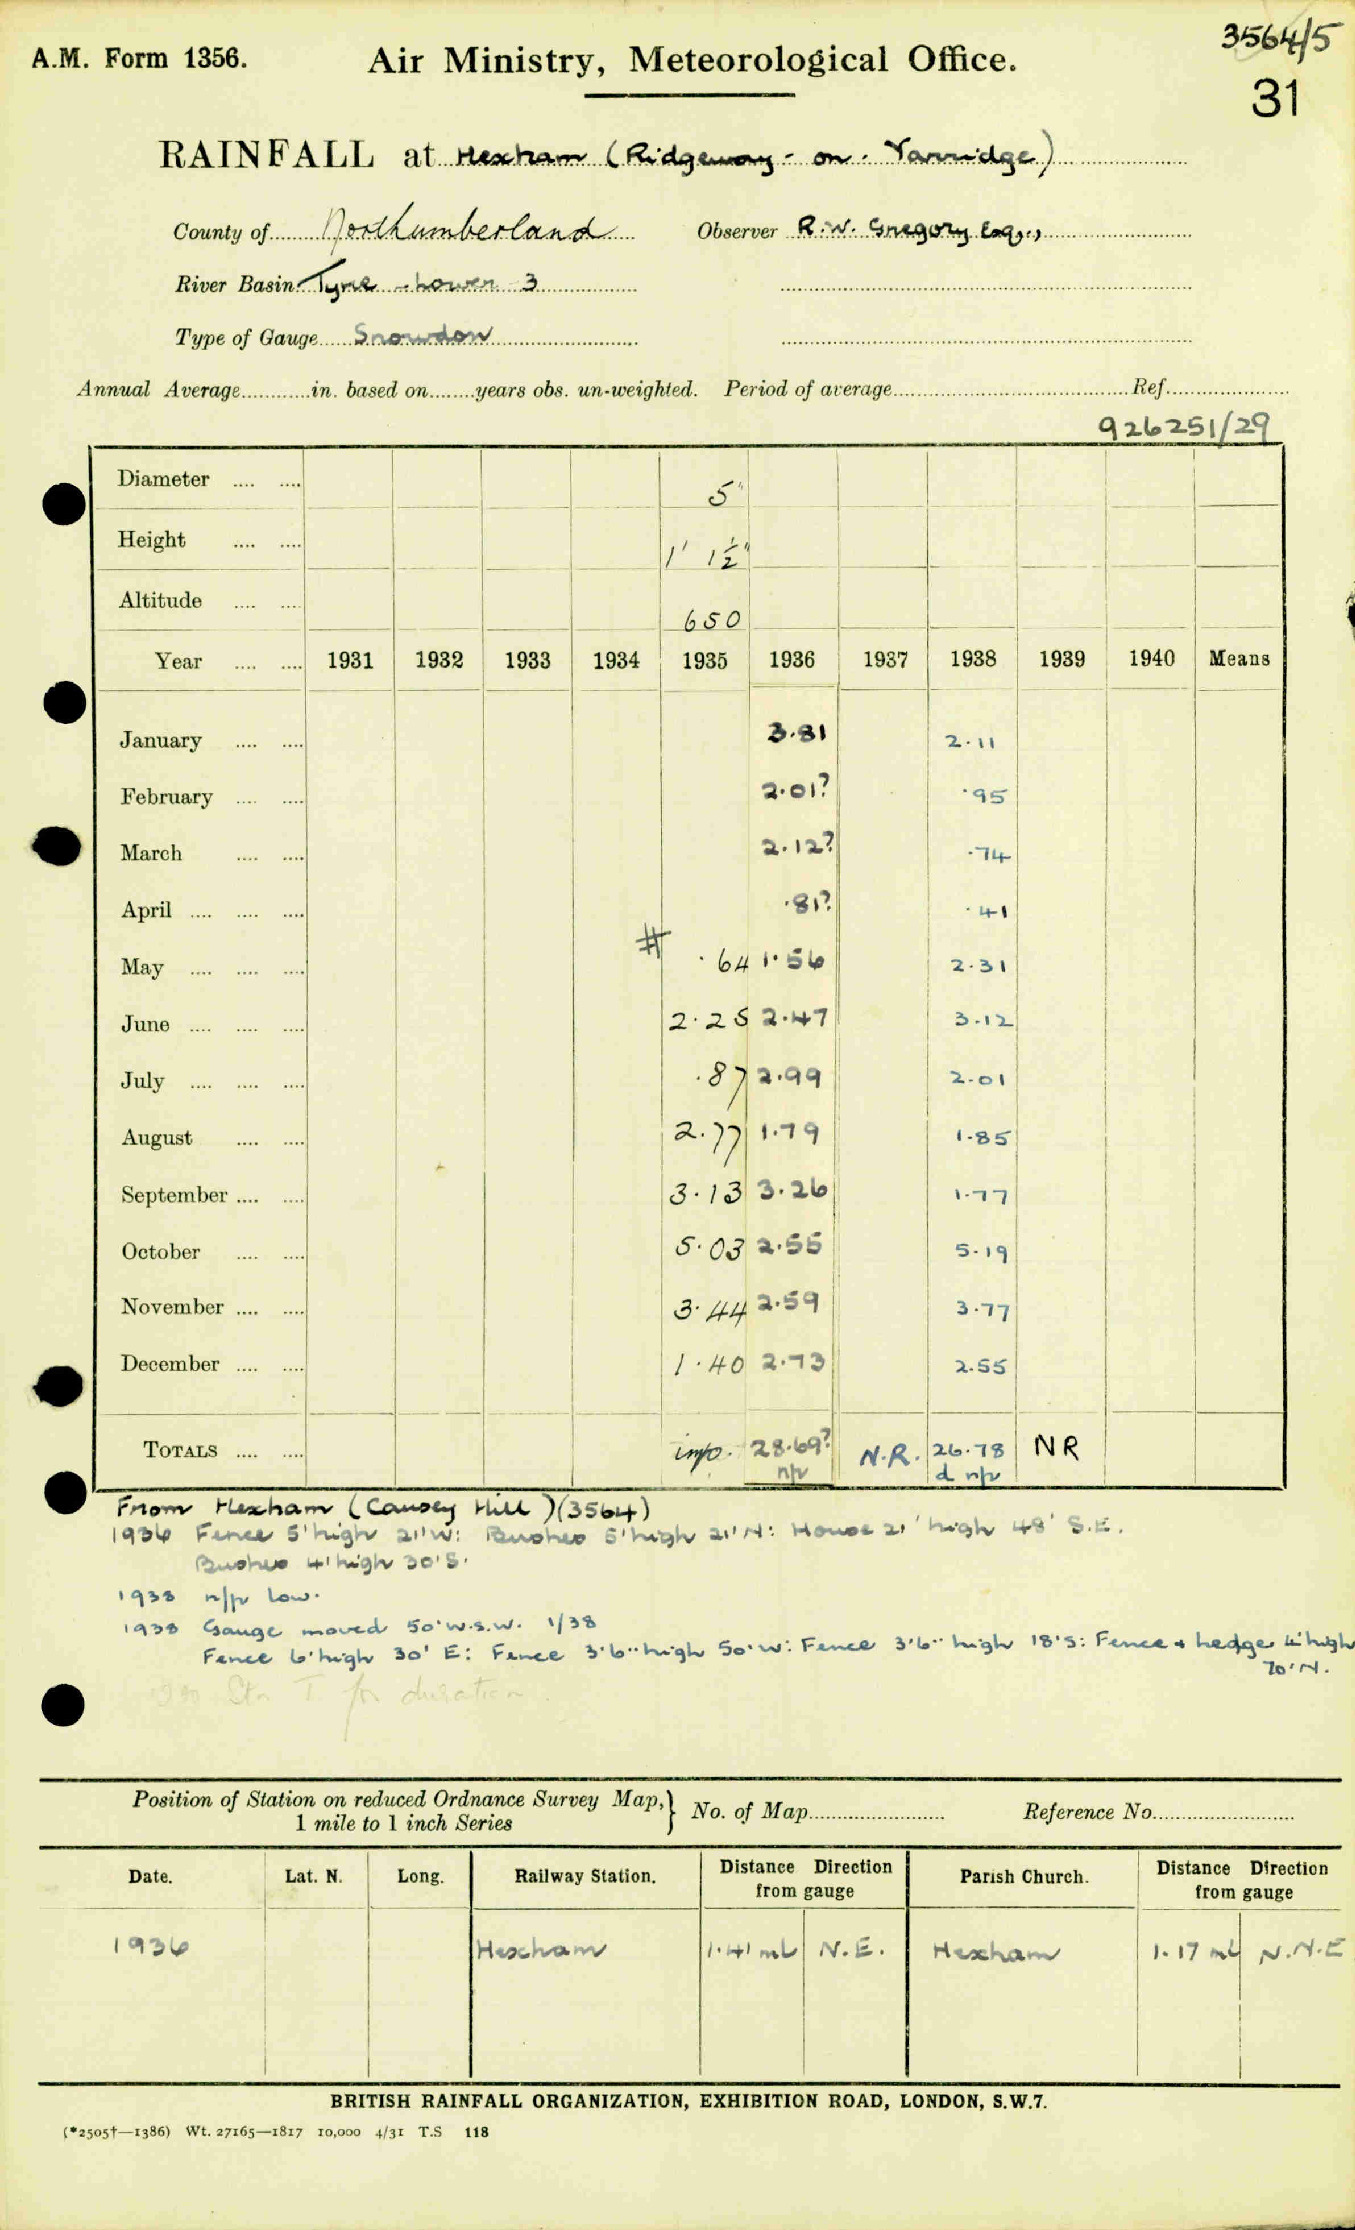 3564/5
A.M. Form 1356. Air Ministry, Meteorological Office.
31
RAINFALL at Hexham (Ridgeway - on - Yarridge)
County of Northumberland Observer R.W. Gregory Esq.,
River Basin Tyne - Lower 3
Type of Gauge Snowdon
Annual Average in. based on years obs. un-weighted. Period of average Ref.
926251/29
Diameter .... .... 5"
Height .... .... 1' 1½"
Altitude .... .... 650
Year .... .... 1931 1932 1933 1934 1935 1936 1937 1938 1939 1940 Means
January .... .... 3.81 2.11
February .... .... 2.01? .95
March .... .... 2.12? .74
April .... .... .... .81? .41
May .... .... .... # .64 1.56 2.31
June .... .... .... 2.25 2.47 3.12
July .... .... .... .87 2.99 2.01
August .... .... 2.77 1.79 1.85
September .... .... 3.13 3.26 1.77
October .... .... 5.03 2.55 5.19
November .... .... 3.44 2.59 3.77
December .... .... 1.40 2.73 2.55
TOTALS .... .... inp. 28.69? N.R. 26.78 NR
n/p d n/p
From Hexham (Causey Hill) (3564)
1936 Fence 5' high 21' W: Bushes 5' high 21' N: House 21' high 48' S.E.
Bushes 4' high 30' S.
1938 n/p low.
1938 Gauge moved 50' W.S.W. 1/38
Fence 6' high 30' E: Fence 3'6" high 50' W: Fence 3'6" high 18' S: Fence + hedge 4' high
70' N.
Stn for duration
Position of Station on reduced Ordnance Survey Map, } No. of Map Reference No.
1 mile to 1 inch Series
Date. Lat. N. Long. Railway Station. Distance Direction from gauge Parish Church. Distance Direction from gauge
1936 Hexham 1.41 ml N.E. Hexham 1.17 ml N.N.E
BRITISH RAINFALL ORGANIZATION, EXHIBITION ROAD, LONDON, S.W.7.
(*2505†—1386) Wt. 27165—1817 10,000 4/31 T.S 118